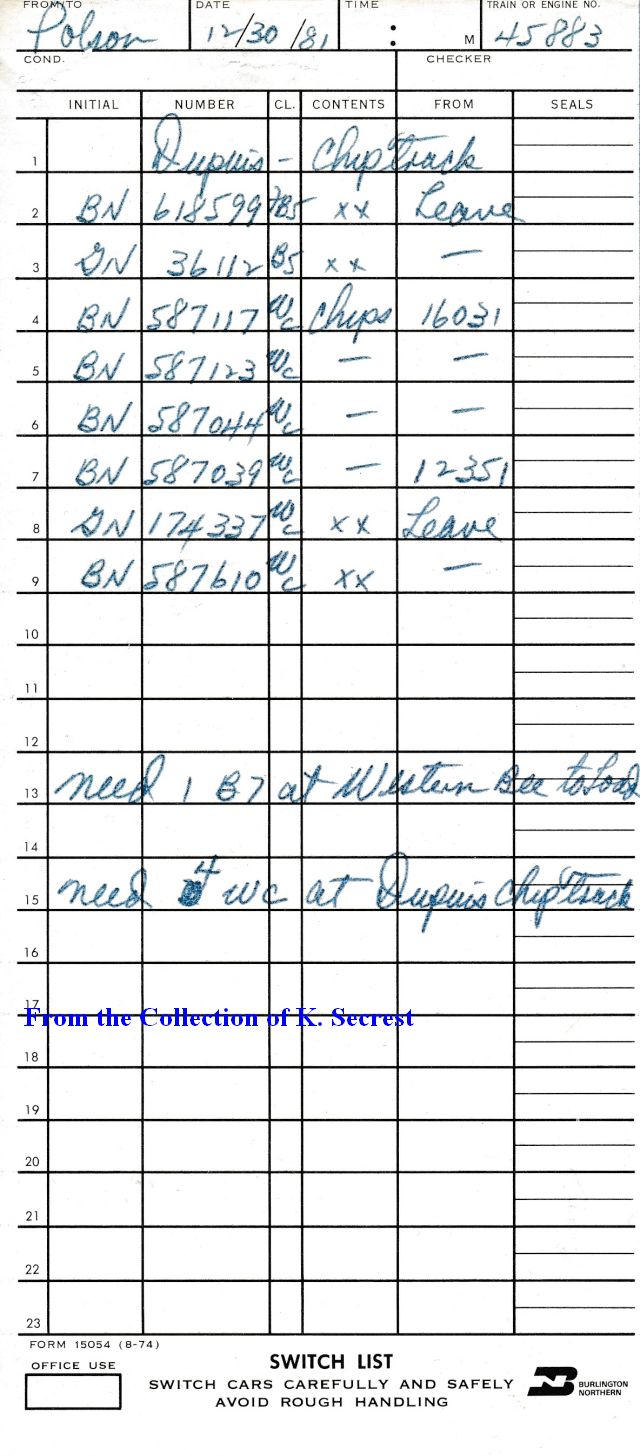 FROM/TO DATE TIME TRAIN OR ENGINE NO.
Polson 12/30/81 : M 45883
COND. CHECKER
INITIAL NUMBER CL. CONTENTS FROM SEALS
1 Dupuis - Chip track
2 BN 618599 B5 xx Leave
3 GN 36112 B5 xx —
4 BN 587117 Wc Chips 16031
5 BN 587123 Wc — —
6 BN 587044 Wc — —
7 BN 587039 Wc — 12351
8 GN 174337 Wc xx Leave
9 BN 587610 Wc xx —
10
11
12
13 need 1 B7 at Western Bee to Load
14
15 need 4 WC at Dupuis Chip track
16
17
From the Collection of K. Secrest
18
19
20
21
22
23
FORM 15054 (8-74)
OFFICE USE
SWITCH LIST
SWITCH CARS CAREFULLY AND SAFELY
AVOID ROUGH HANDLING
BURLINGTON
NORTHERN